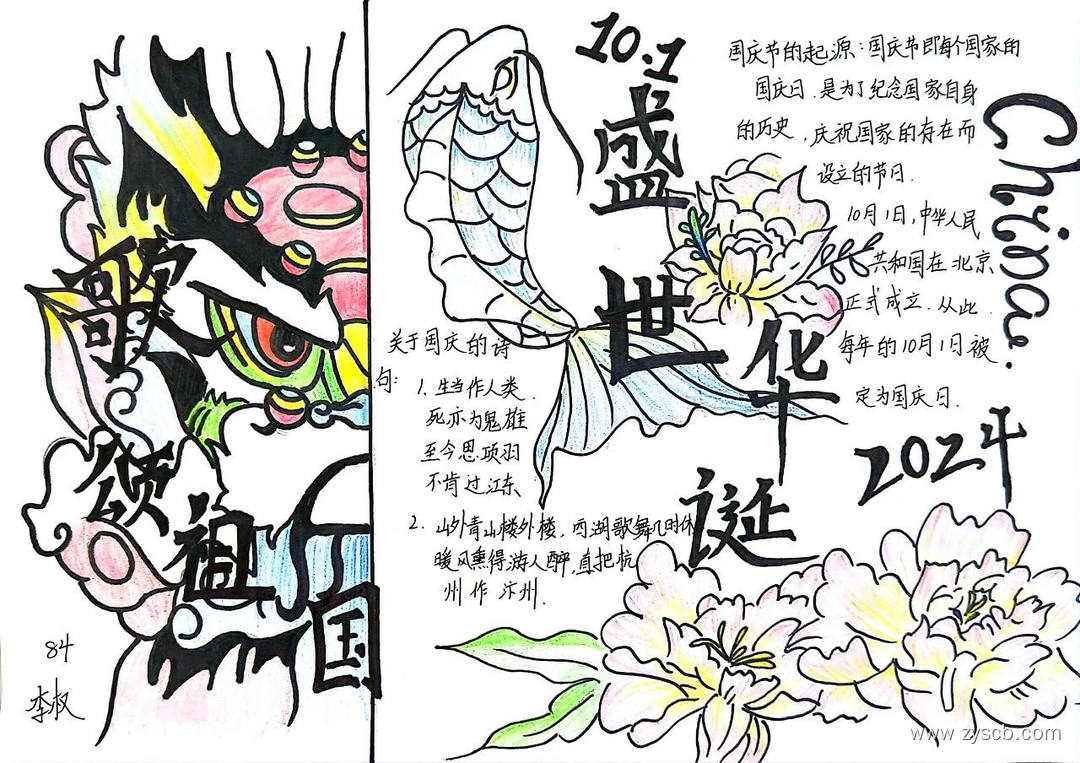 歌
颂
祖
国
84
李
10.1
盛
世
华
诞
国庆节的起源:国庆节即每个国家的
国庆日.是为了纪念国家自身
的历史,庆祝国家的存在而
设立的节日.
10月1日,中华人民
共和国在北京
正式成立.从此.
每年的10月1日被
定为国庆日.
China.
2024
关于国庆的诗
句:
1. 生当作人类.
死亦为鬼雄
至今思项羽
不肯过江东
2. 山外青山楼外楼,西湖歌舞几时休
暖风熏得游人醉,直把杭
州作汴州.
www.zyscb.com